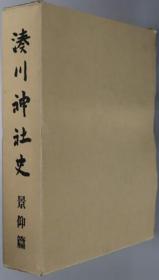 湊川神社史 景仰篇